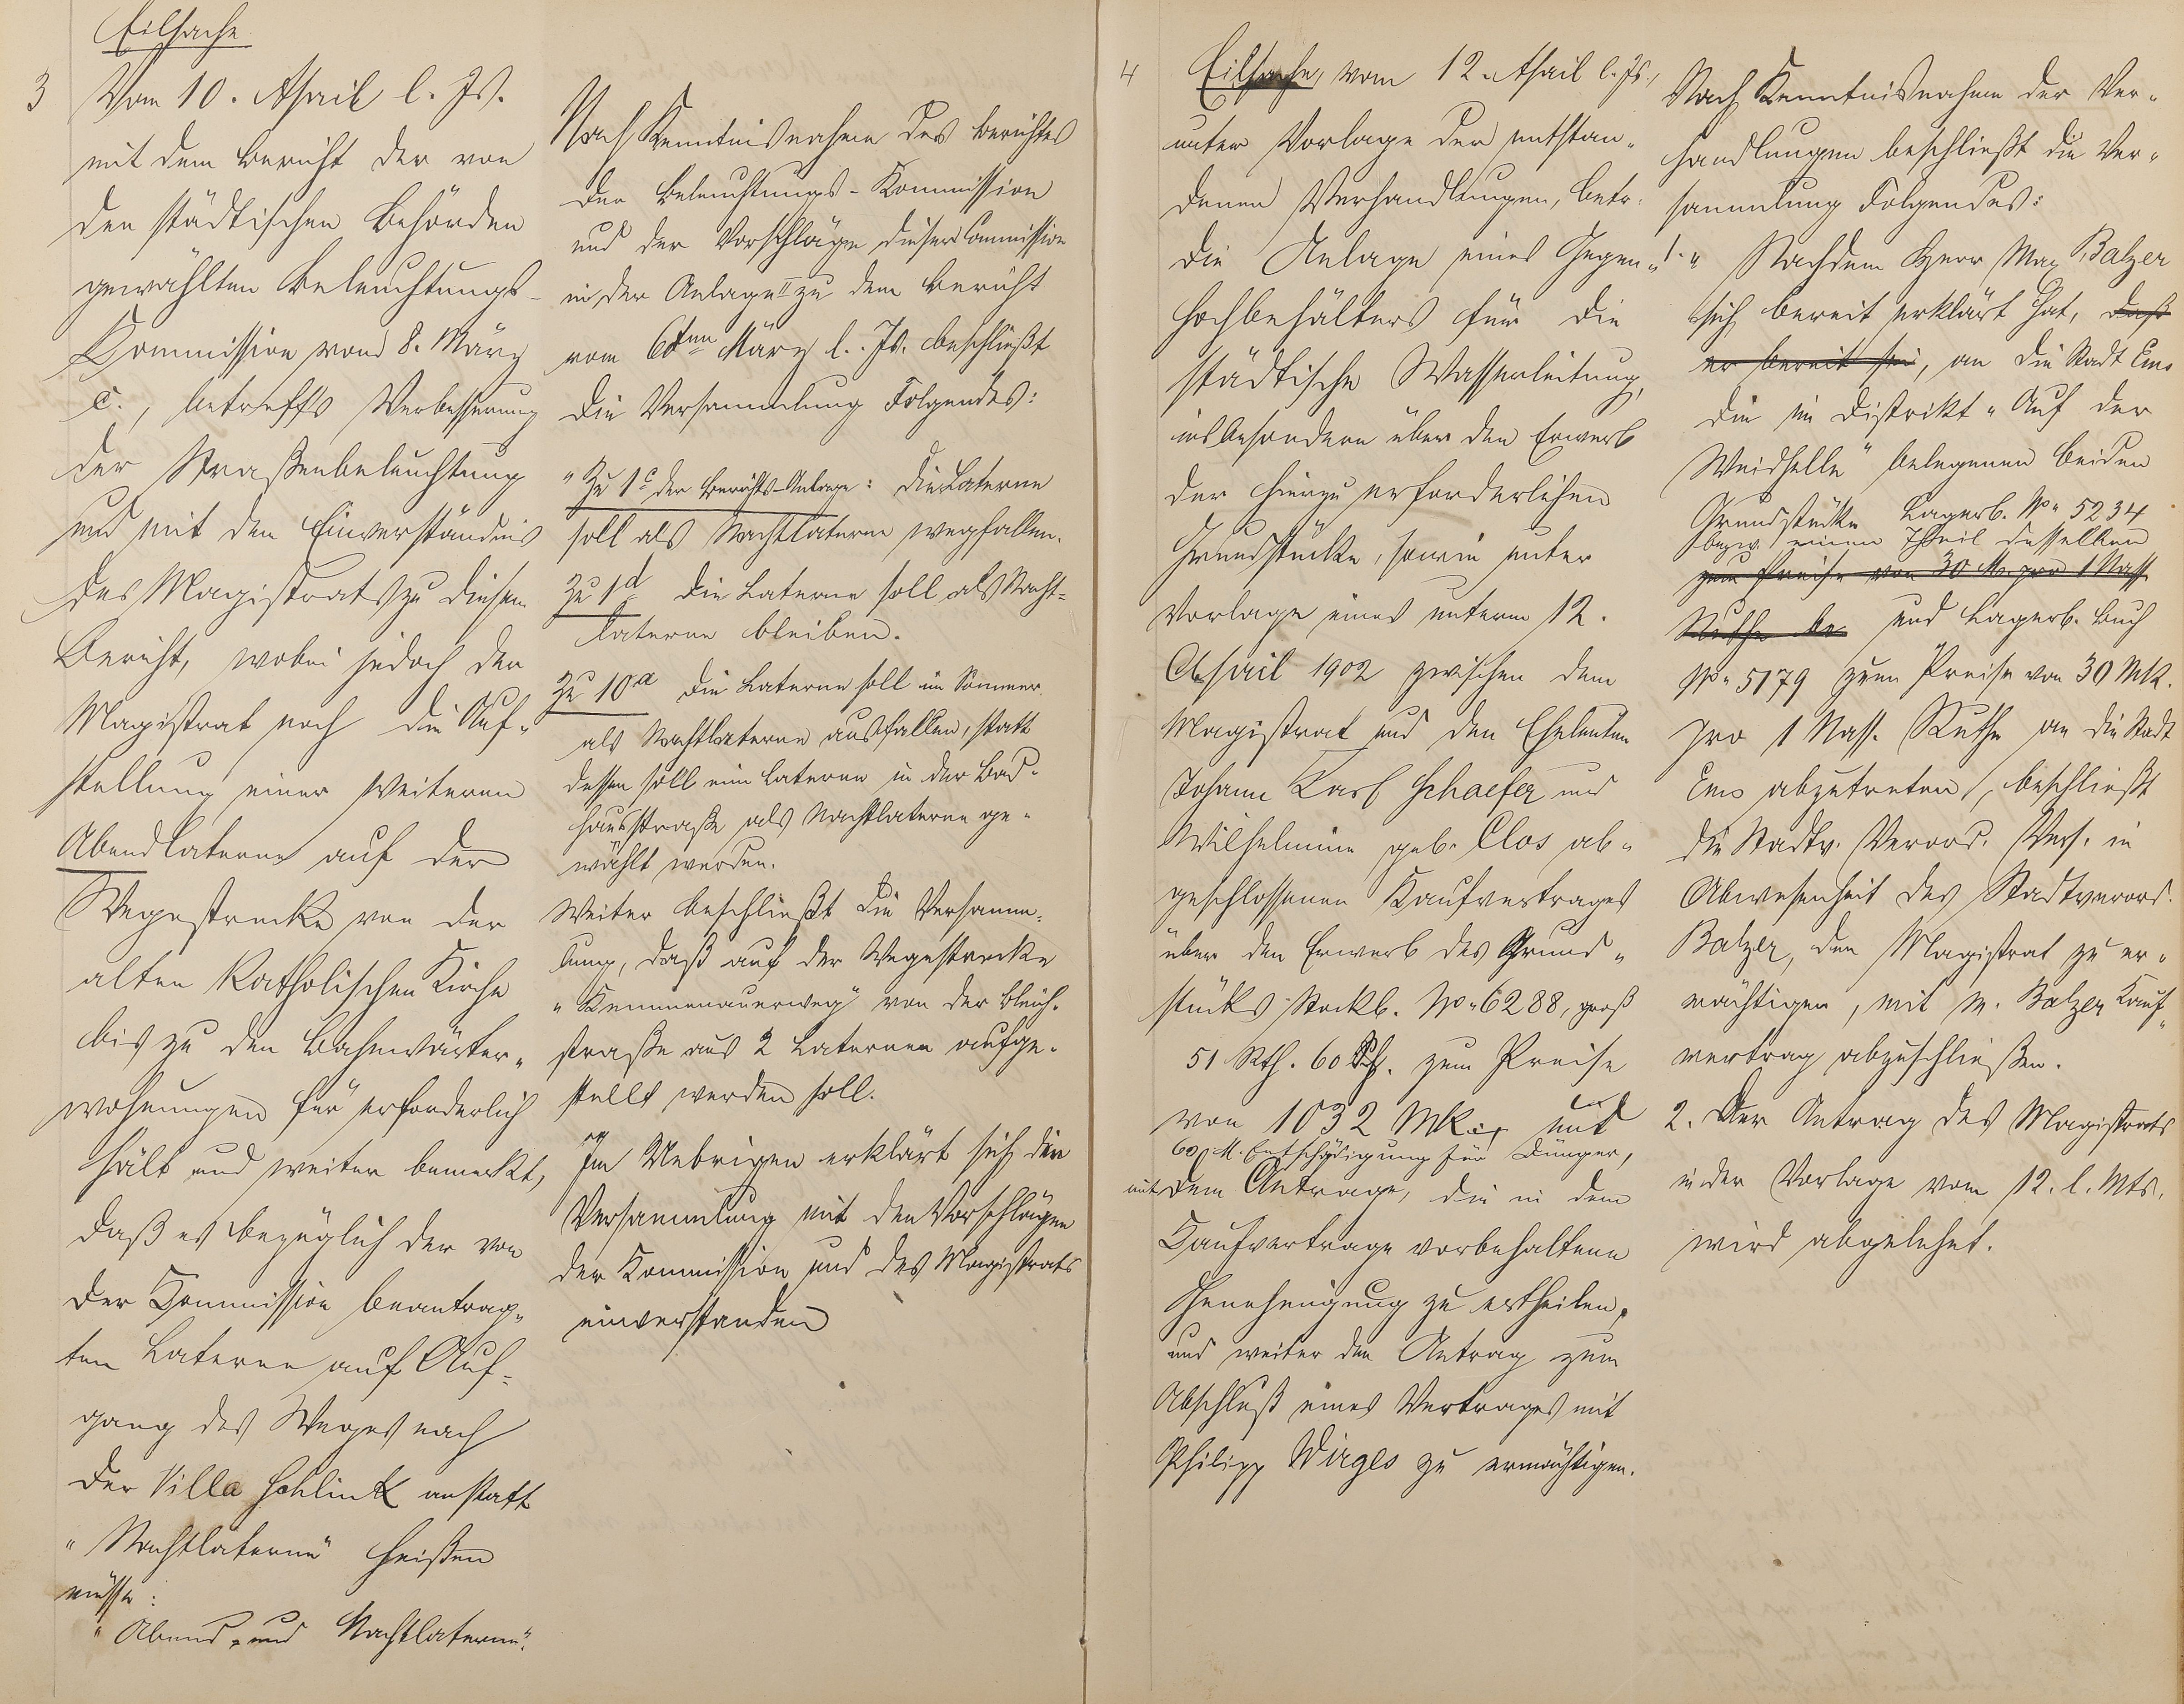 Eilsache
3 Vom 10. April l. Js.
mit dem Bericht der von
den städtischen Behörden
gewählten Beleuchtungs-
Commission vom 8. März
c., betreffs Verbesserung
der Straßenbeleuchtung
und mit dem Einverständnis
des Magistrats zu diesem
Bericht, wobei jedoch der
Magistrat noch die Auf-
stellung einer weiteren
Abendlaterne auf der
Wegestrecke von der
alten katholischen Kirche
bis zu den Bahnwärter-
wohnungen für erforderlich
hält und weiter bemerkt,
daß es bezüglich der von
der Commission beantrag-
ten Laterne auf Auf-
gang des Weges nach
der Villa Schlink anstatt
"Nachtlaterne" heißen
müsse:
"Abend- und Nachtlaterne".
Nach Kenntnisnahme des Berichtes
der Beleuchtungs-Kommission
und der Vorschläge dieser Commission
in der Anlage II zu dem Bericht
vom 6ten März l. Js. beschließt
die Versammlung Folgendes:
"Zu 1c der Berichts-Anlage: Die Laterne
soll als Nachtlaterne wegfallen.
Zu 1d die Laterne soll als Nacht-
laterne bleiben.
Zu 10a die Laterne soll im Sommer
als Nachtlaterne ausfallen, statt
dessen soll eine Laterne in der Bad-
hausstraße als Nachtlaterne ge-
wählt werden.
Weiter beschließt die Versamm-
lung, daß auf der Wegestrecke
"Kemmenauerweg" von der Bleich-
straße aus 2 Laternen aufge-
stellt werden soll.
Im Uebrigen erklärt sich die
Versammlung mit den Vorschlägen
der Kommission und des Magistrats
einverstanden
4 Eilsache, vom 12. April l. Js.,
unter Vorlage der entstan-
denen Verhandlungen, betr.
die Anlage eines Gegen-
hochbehälters für die
städtische Wasserleitung,
insbesondere über den Erwerb
der hierzu erforderlichen
Grundstücke, sowie unter
Vorlage eines unterm 12.
April 1902 zwischen dem
Magistrat und den Eheleuten
Johann Karl Schaefer und
Wilhelmine geb. Clos ab-
geschlossenen Kaufvertrages
über den Erwerb des Grund-
stücks Stockb. No 6288, groß
51 Rth. 60 Sch. zum Preise
von 1032 Mk. und
60 M. Entschädigung für Dünger,
mit dem Antrage, die in dem
Kaufvertrage vorbehaltene
Genehmigung zu ertheilen,
und weiter den Antrag zum
Abschluß eines Vertrages mit
Philipp Wirges zu ermächtigen.
Nach Kenntnisnahme der Ver-
handlungen beschließt die Ver-
sammlung Folgendes:
1. "Nachdem Herr Max Balzer
sich bereit erklärt hat, daß
er bereit sei, an die Stadt Ems
die im Distrikt "Auf der
Weidhelle" belegenen beiden
Grundstücke Lagerb. No 5234
bezw. einen Theil desselben
zum Preise von 30 M. pro 1 Nass.
Ruthe und Lagerb. Buch
No 5179 zum Preise von 30 Mk.
pro 1 Nass. Ruthe an die Stadt
Ems abzutreten, beschließt
die Stadtv. Verord. Vers. in
Abwesenheit des Stadtverord.
Balzer, den Magistrat zu er-
mächtigen, mit M. Balzer Kauf-
vertrag abzuschließen.
2. Der Antrag des Magistrats
in der Vorlage vom 12. l. Mts.
wird abgelehnt.